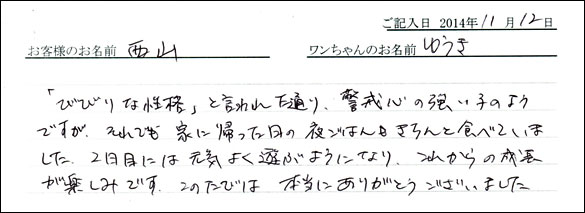 ご記入日 2014年11月12日
お客様のお名前 西山 ワンちゃんのお名前 ゆうき
「びびりな性格」と言われた通り、警戒心の強い子のよう
ですが、それでも家に帰った日の夜ごはんもきちんと食べていま
した。2日目には元気よく遊ぶようになり、これからの成長
が楽しみです。このたびは本当にありがとうございました